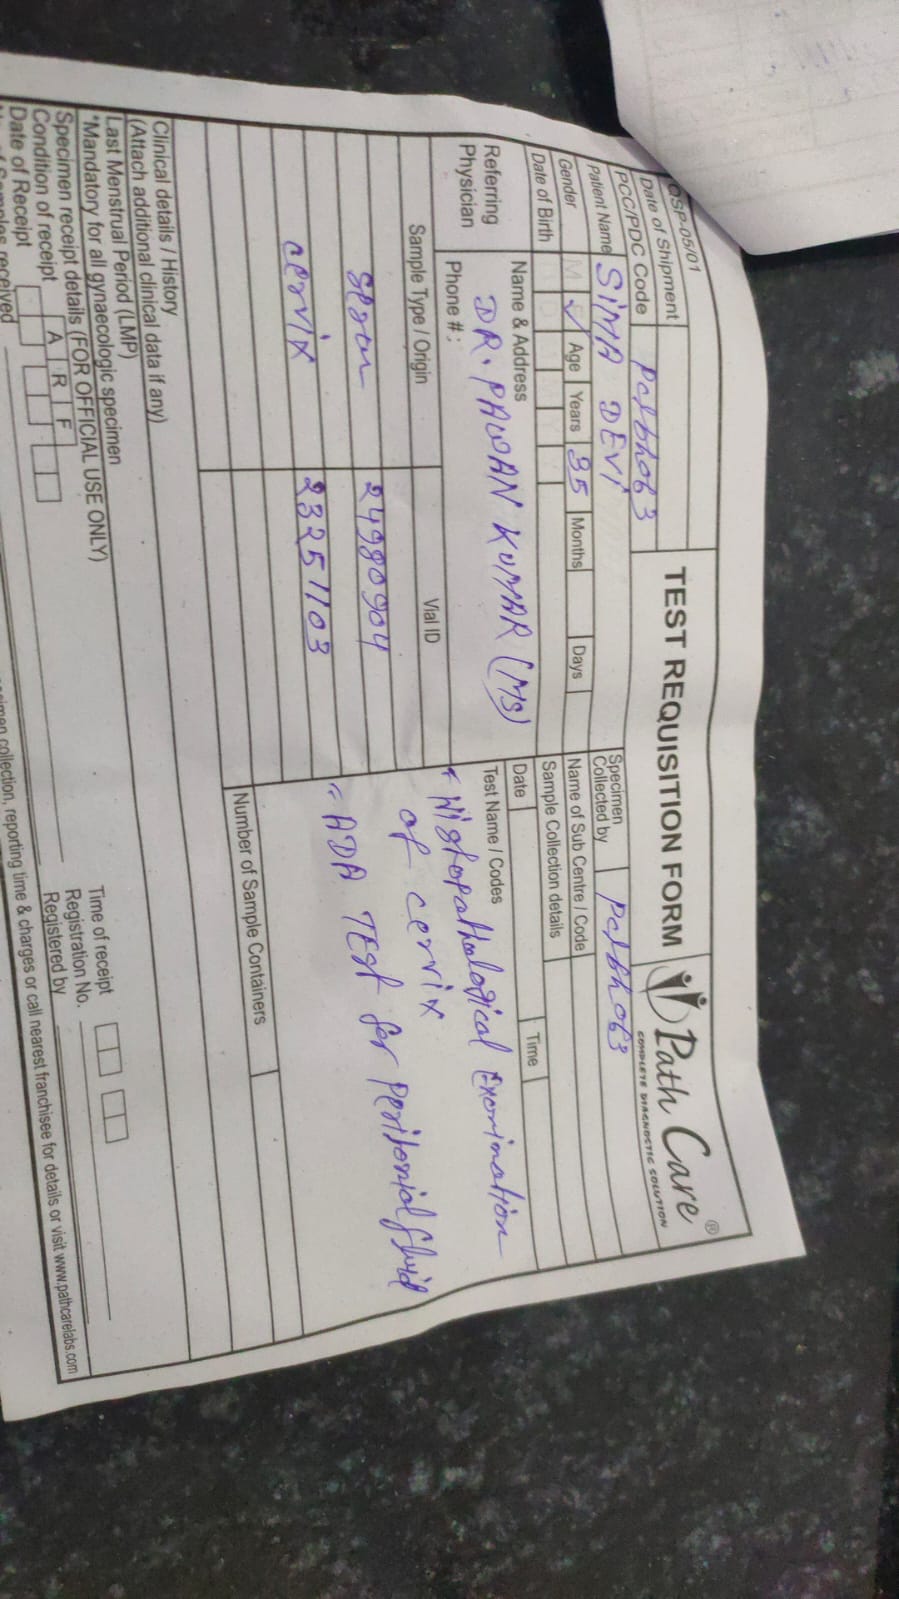 QSP-05/01
TEST REQUISITION FORM
Path Care®
COMPLETE DIAGNOSTIC SOLUTION
Date of Shipment
PCC/PDC Code
Specimen Collected by
Patient Name SIMA DEVI
Name of Sub Centre / Code
Gender M F ✓ Age Years 35 Months Days
Sample Collection details
Date of Birth
Date Time
Referring Physician
Name & Address
DR. PAWAN KUMAR (MS)
Phone # :
Test Name / Codes
Histopathological Examination
of cervix
ADA TEST for Peritonial fluid
Sample Type / Origin Vial ID
24980904
cervix 23251103
Number of Sample Containers
Clinical details / History
(Attach additional clinical data if any)
Last Menstrual Period (LMP)
*Mandatory for all gynaecologic specimen
Specimen receipt details (FOR OFFICIAL USE ONLY)
Condition of receipt A R F
Time of receipt
Date of Receipt
Registration No.
received
Registered by
collection, reporting time & charges or call nearest franchisee for details or visit www.pathcarelabs.com